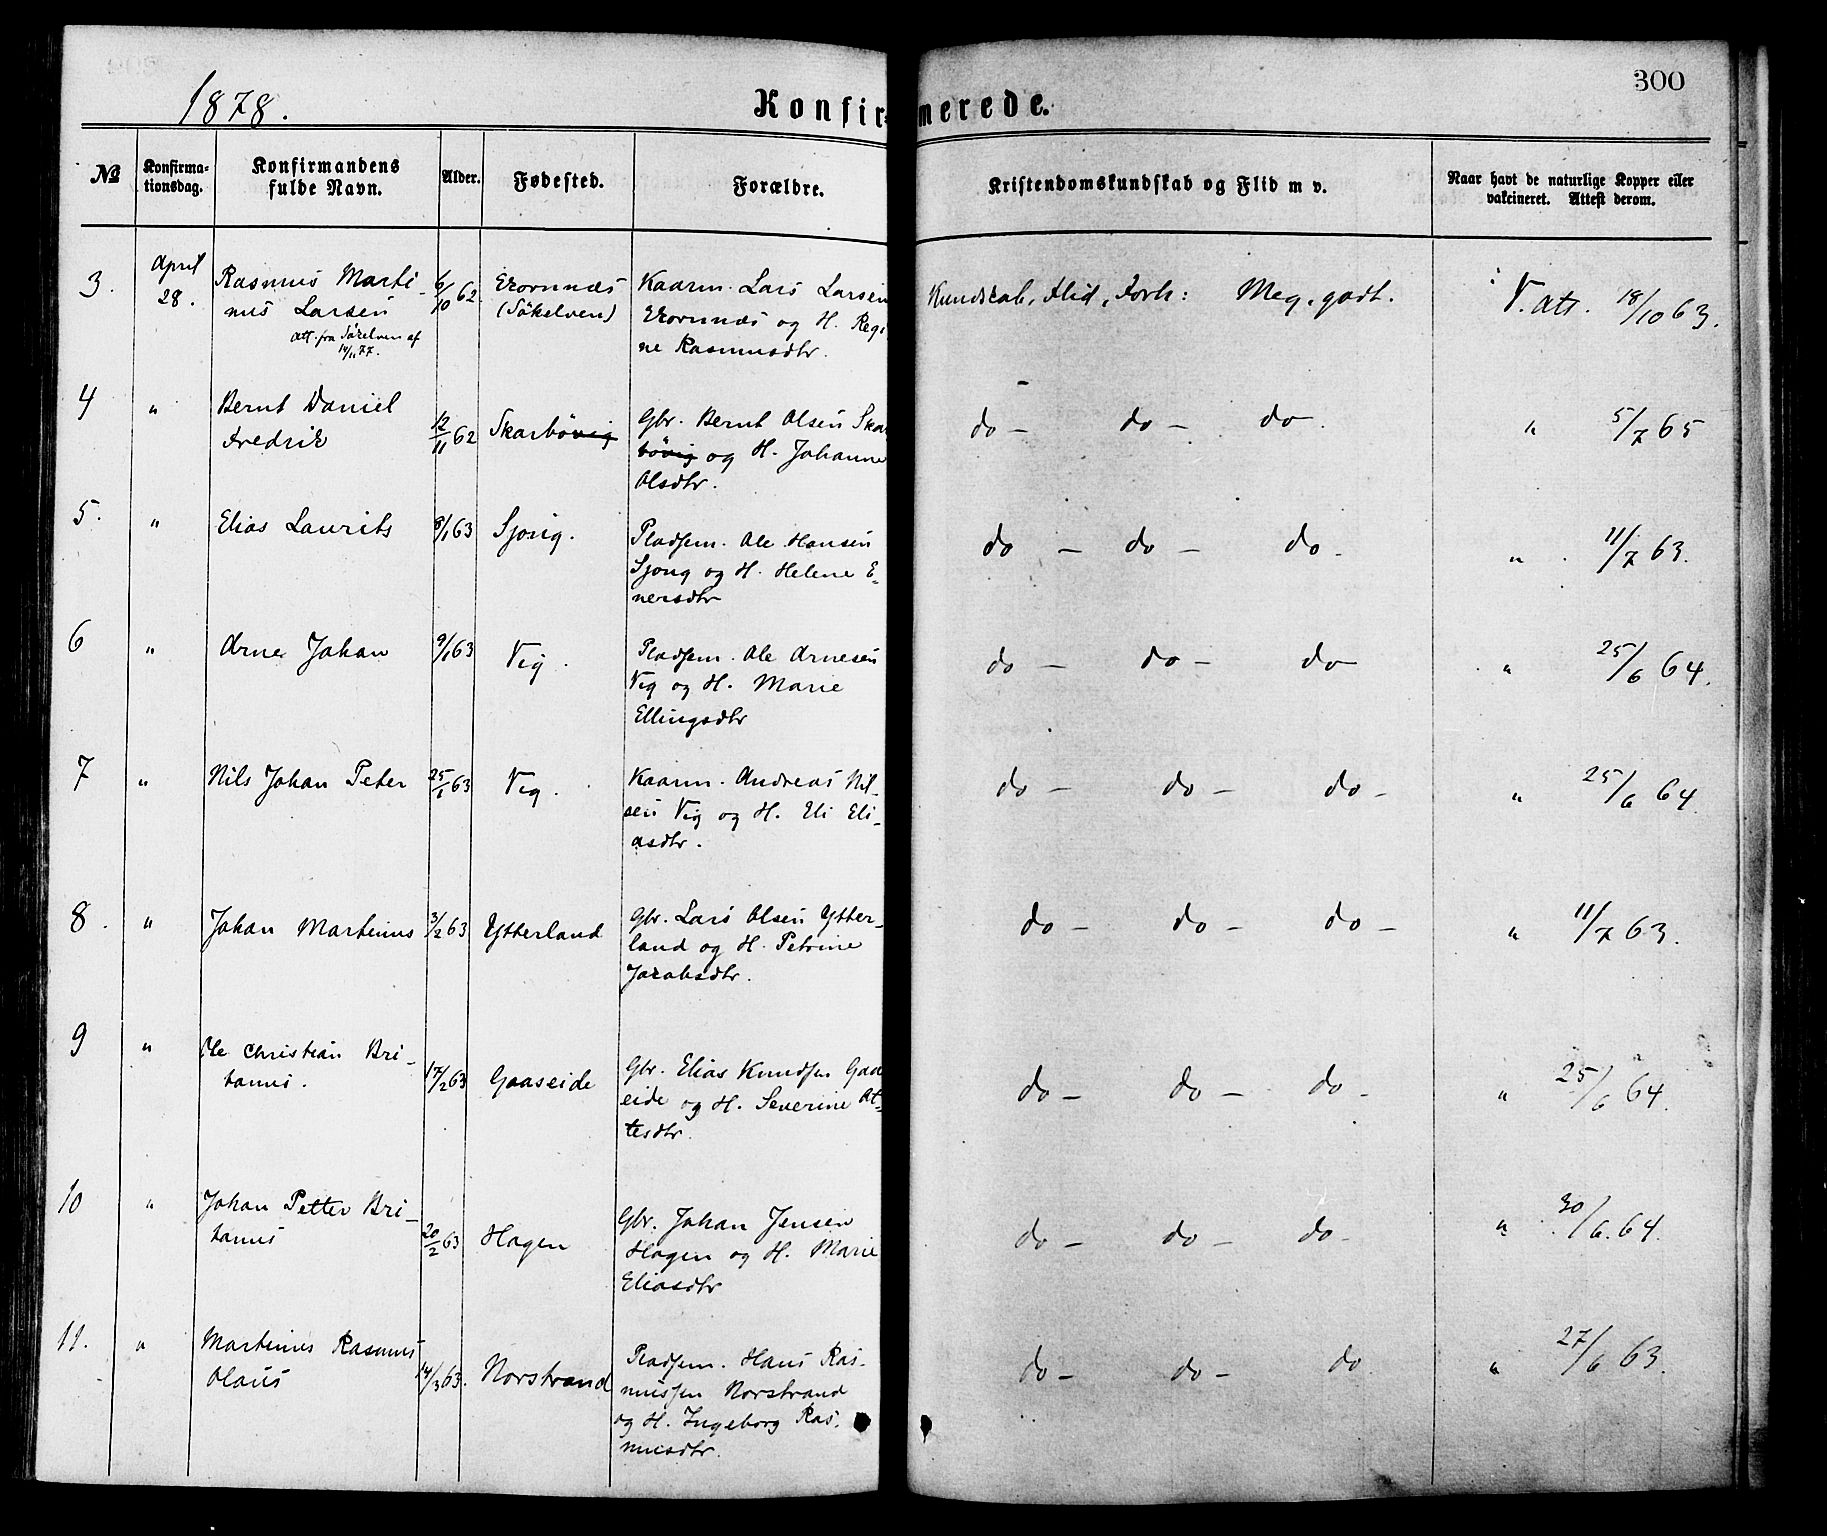 1878.
Konfirmerede.
300
No
Konfirma-
tionsdag.
Konfirmandens
fulde Navn.
Alder.
Fødested.
Forældre.
Kristendomskundskab og Flid m v.
Naar havt de naturlige Kopper eller
vakcineret. Attest derom.
3.
April
28.
Rasmus Marti-
nus Larsen
Att. fra Søkelven af
14/11 77.
6/10 62
(Søkelven)
Kaarm. Lars Larsen
og H. Regi
ne Rasmusdtr.
Kundskab, Flid, Forh: Meg. godt.
V. att. 18/10 63.
4
"
Bernt Daniel
Fredrik
12/11 62
Skarbøvig
Gbr. Bernt Olsen Skar
bøvig og H. Johanne
Olsdtr.
do – do – do –
" 5/7 65
5.
"
Elias Laurits
8/1 63
Sjong.
Pladsem. Ole Hansen
Sjong og H. Helene E-
nersdtr
do – do – do –
" 11/7 63.
6
"
Arne Johan
9/1 63
Vig.
Pladsem. Ole Arnesen
Vig og H. Marie
Ellingsdtr
do – do – do
" 25/6 64.
7
"
Nils Johan Peter
25/1 63
Vig.
Kaarm. Andreas Nil-
sen Vig og H. Eli Eli-
asdtr.
do – do – do –
" 25/6 64.
8.
"
Johan Martinus
3/2 63
Ytterland
Gbr. Lars Olsen Ytter-
land og H. Petrine
Jacobsdtr.
do – do – do –
" 11/7 63.
9
"
Ole Christian Bri-
tanus.
17/2 63
Gaaseide
Gbr. Elias Knudsen Gaas
eide og H. Severine Ot-
tesdtr.
do – do – do –
" 25/6 64.
10
"
Johan Petter Bri-
tanus
20/2 63
Hagen
Gbr. Johan Jensen
Hagen og H. Marie
Eliasdtr
do – do – do –
" 30/6. 64.
11.
"
Martinus Rasmus
Olaus
14/3 63.
Norstrand
Pladsem. Hans Ras-
mussen Norstrand
og H. Ingeborg Ras-
musdtr.
do – do – do
" 27/6 63.